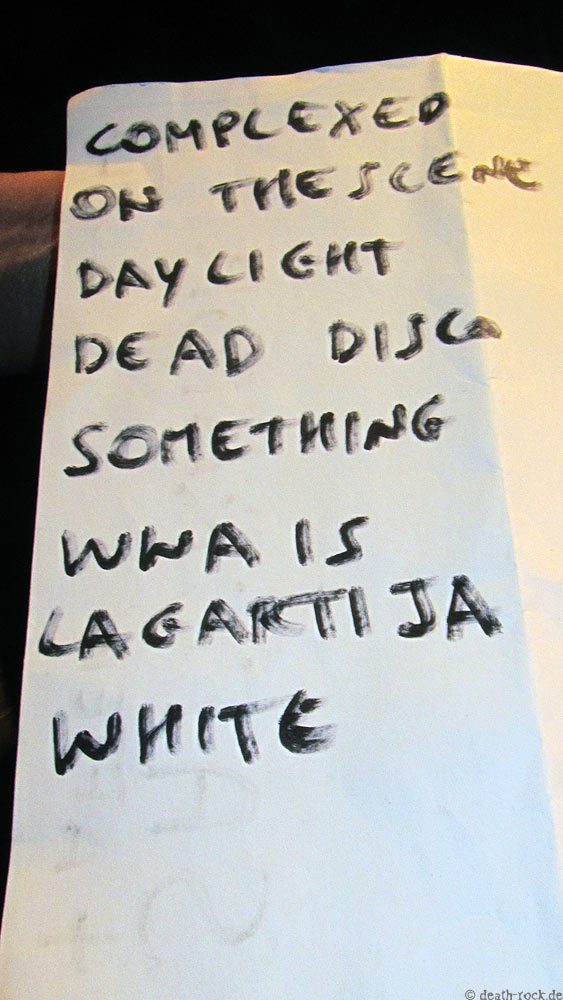 COMPLEXED
ON THE SCENE
DAYLIGHT
DEAD DISCO
SOMETHING
WWA IS
LAGARTIJA
WHITE
© death-rock.de